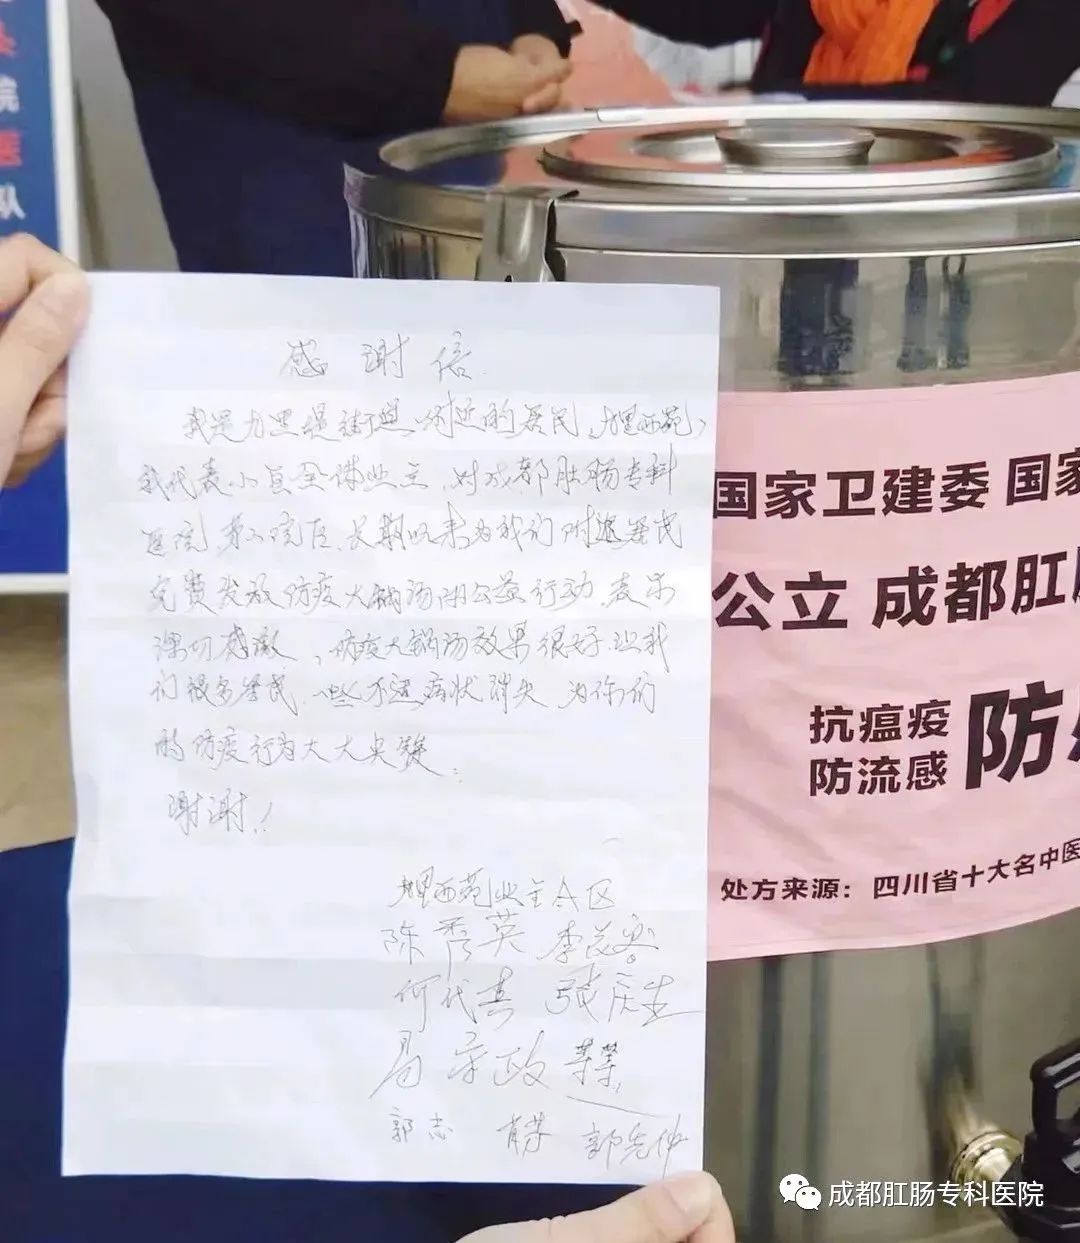 头
院
医
队
感谢信
我是九里堤街道附近的居民，九里西苑，
我代表小区全体业主，对成都肛肠专科
医院第二院区、长期以来为我们附近居民
免费发放防疫大锅汤的公益行动，表示
深切感激，防疫大锅汤效果很好让我
们很多居民，一些不适病状消失，为你们
的防疫行为大大点赞：
谢谢！
九里西苑业主A区
陈秀英 李
何代 张庆生
易 政 等等，
郭志 肖 郭 仲
国家卫建委 国家
公立 成都肛肠
抗瘟疫
防流感
防
处方来源：四川省十大名中医
成都肛肠专科医院